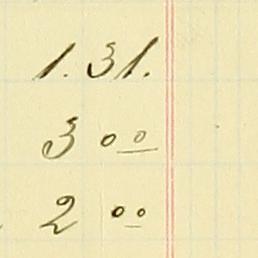 1.31.
3 00
2 00